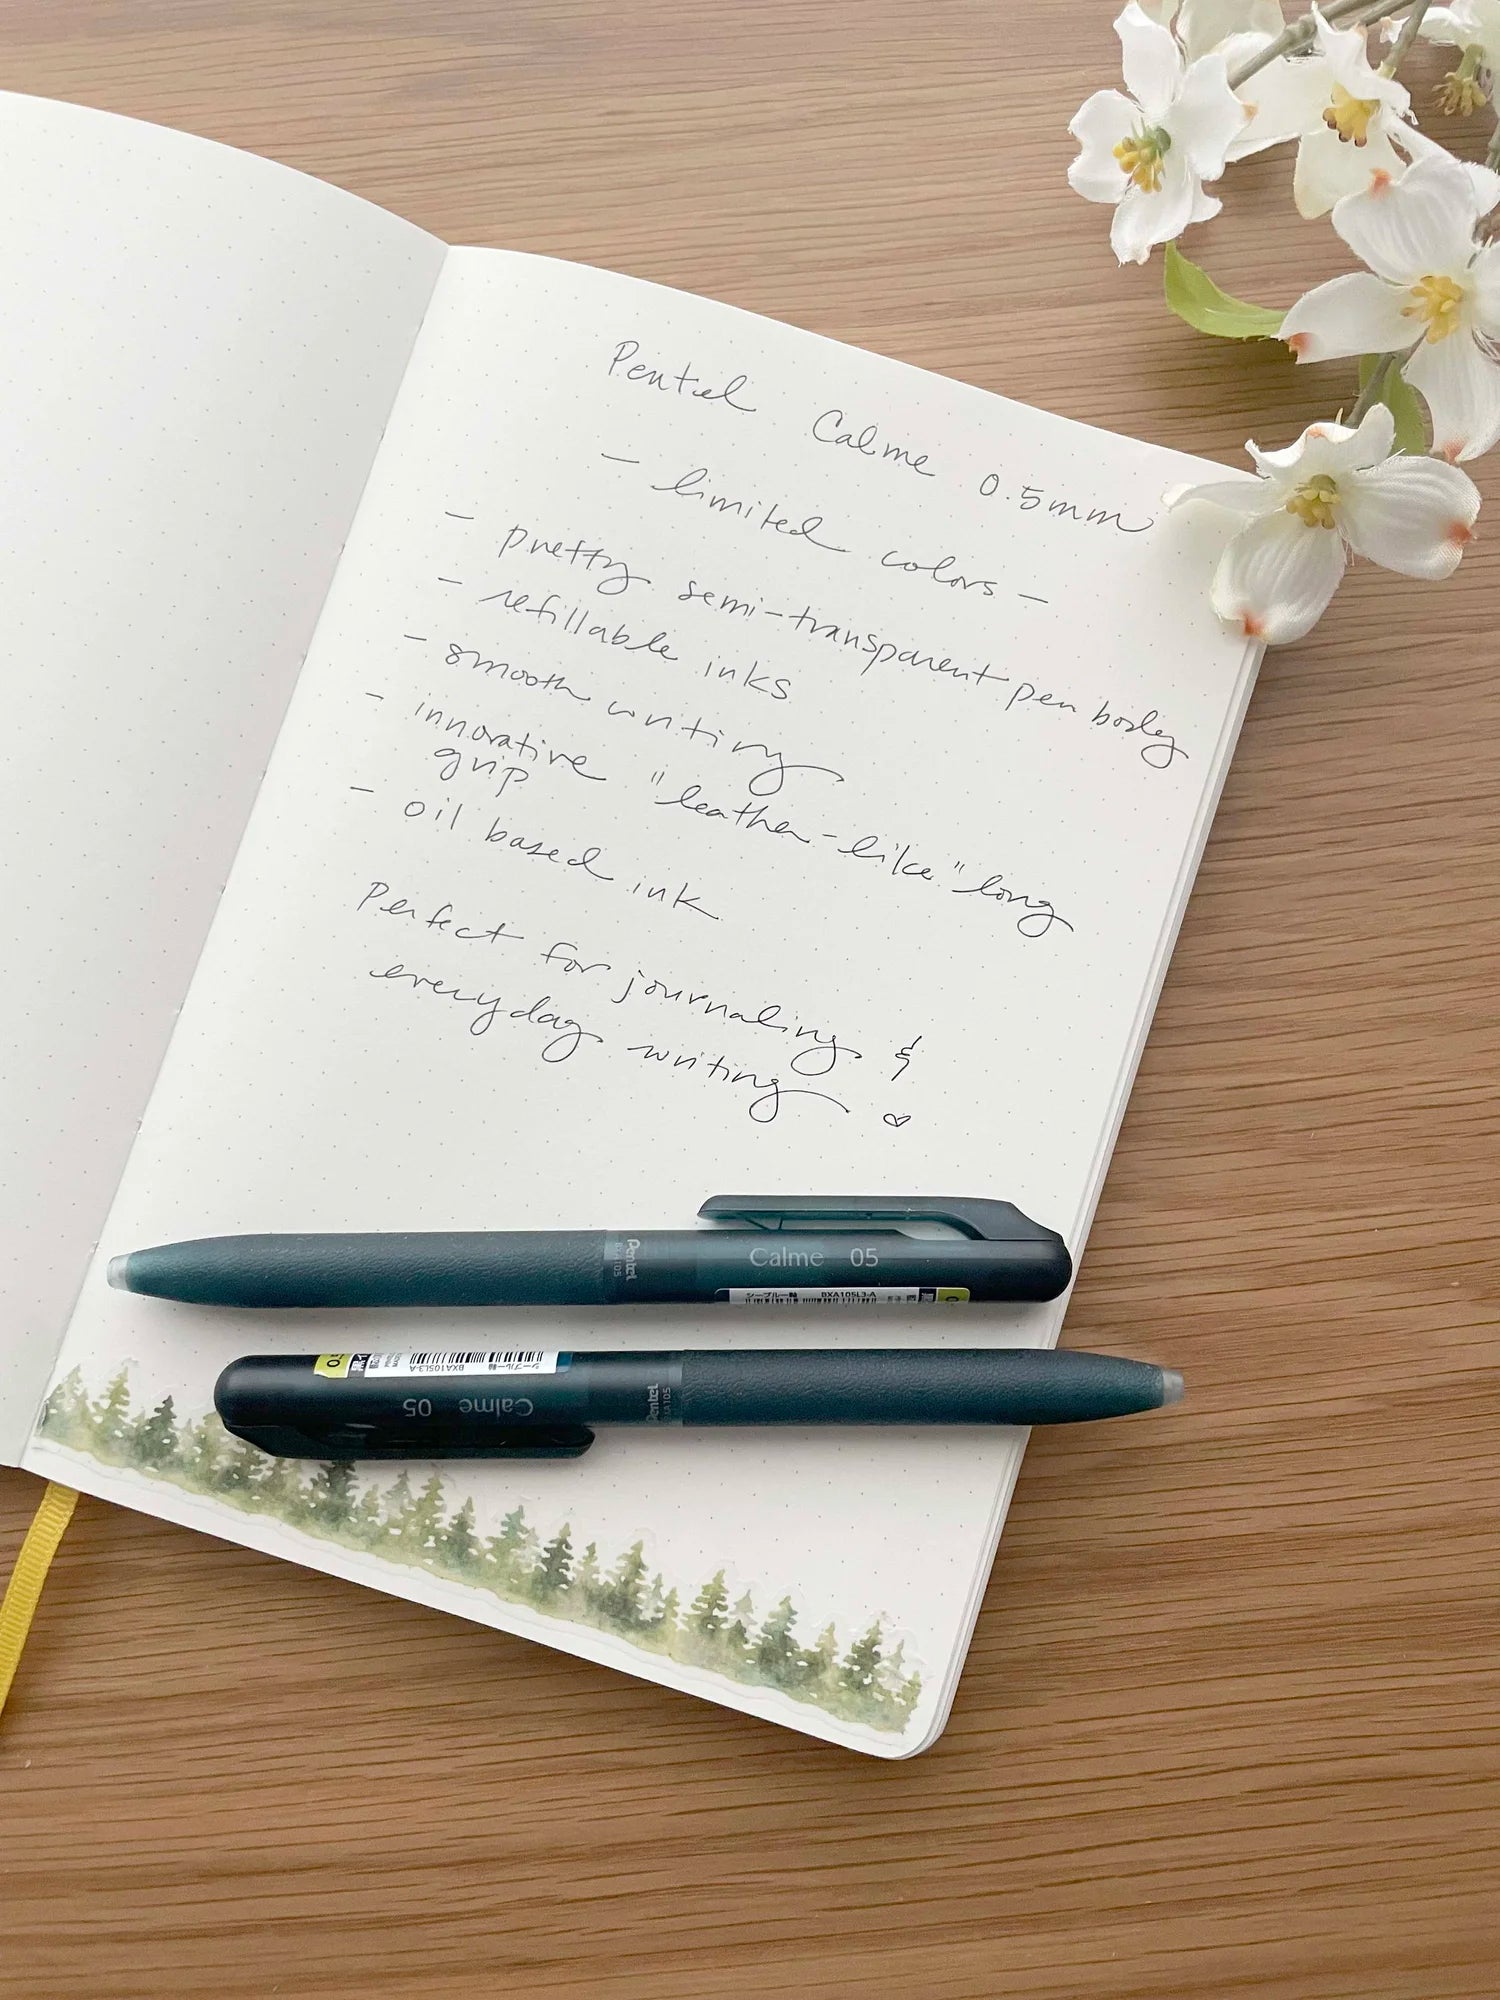 Pentel Calme 0.5mm
- limited colors -
- pretty semi-transparent pen body
- refillable inks
- smooth writing
- innovative "leather-like" long
grip
- oil based ink
Perfect for journaling &
everyday writing ♡
Pentel
BXA105
Calme 05
シーブルー軸 BXA105L3-A
シーブルー軸
BXA105L3-A
Calme 05
Pentel
BXA105